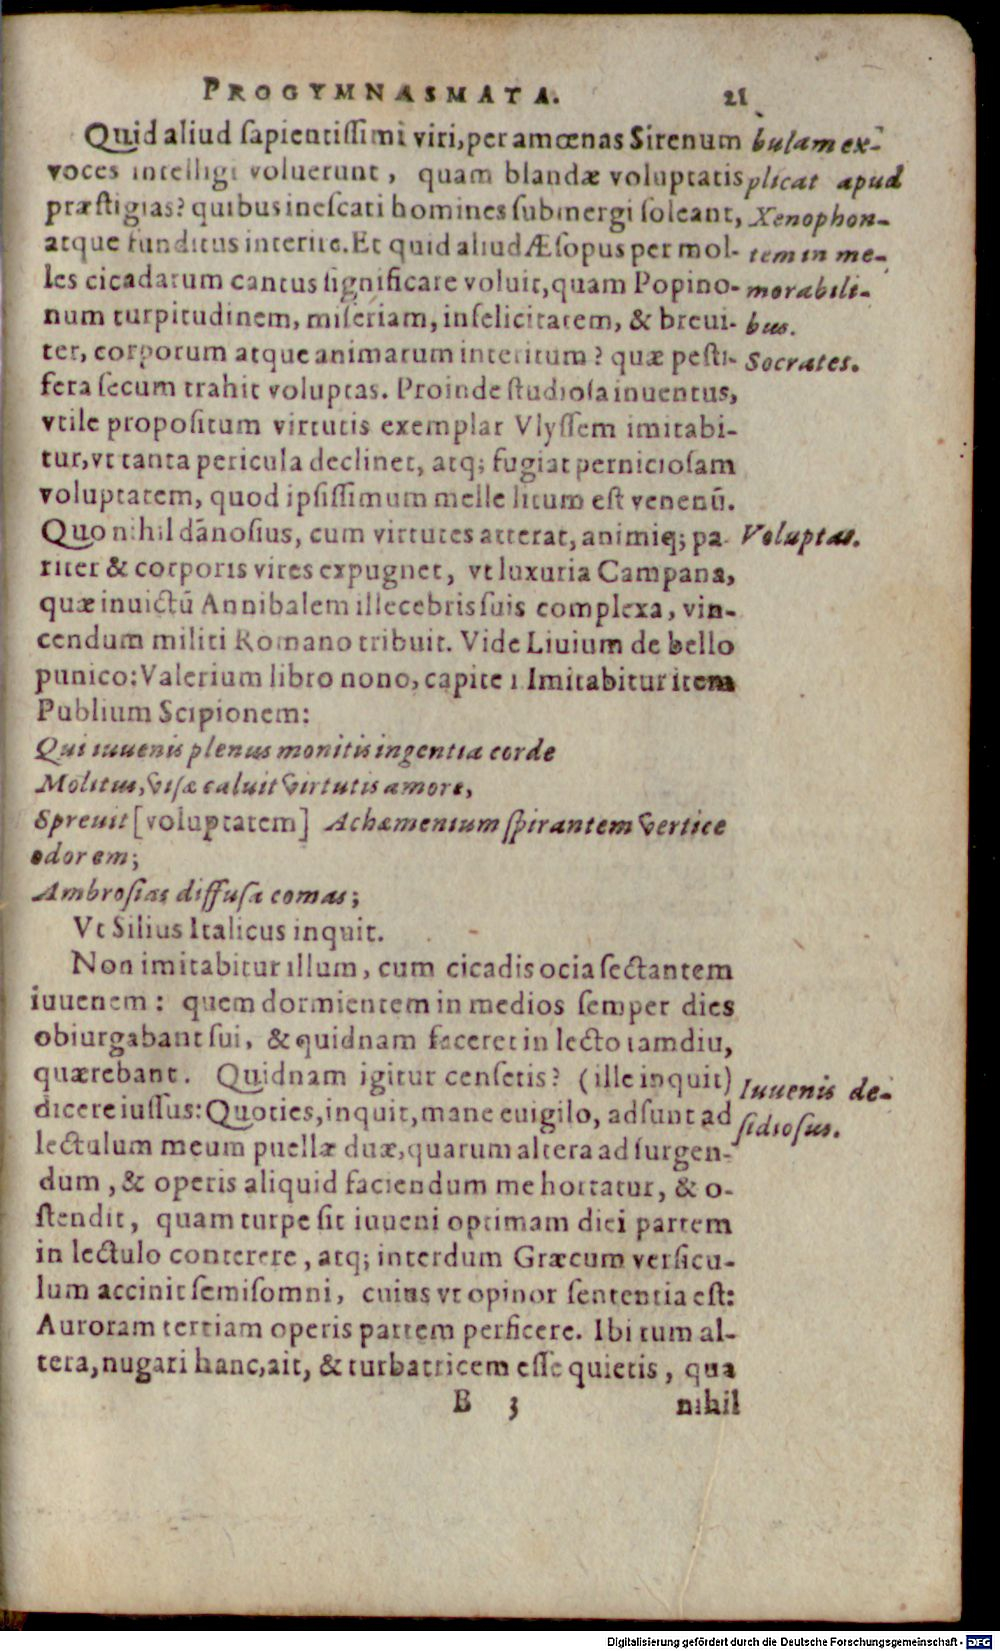 PROGYMNASMATA. 21
Quid aliud sapientissimi viri, per amœnas Sirenum
voces intelligi voluerunt, quam blandæ voluptatis
præstigias? quibus inescati homines submergi soleant,
atque funditus interire. Et quid aliud Æsopus per mol-
les cicadarum cantus significare voluit, quam Popino-
num turpitudinem, miseriam, infelicitatem, & breui-
ter, corporum atque animarum interitum? quæ pesti-
fera secum trahit voluptas. Proinde studiosa iuuentus,
vtile propositum virtutis exemplar Vlyssem imitabi-
tur, vt tanta pericula declinet, atq; fugiat perniciosam
voluptatem, quod ipsissimum melle litum est venenū.
Quo nihil dānosius, cum virtutes atterat, animiq; pa-
riter & corporis vires expugnet, vt luxuria Campana,
quæ inuictū Annibalem illecebris suis complexa, vin-
cendum militi Romano tribuit. Vide Liuium de bello
punico: Valerium libro nono, capite 1 Imitabitur item
Publium Scipionem:
Qui iuuenis plenus monitis ingentia corde
Molitus, visæ caluit virtutis amore,
Spreuit [voluptatem] Achæmenium spirantem vertice
odorem;
Ambrosias diffusa comas;
Vt Silius Italicus inquit.
Non imitabitur illum, cum cicadis ocia sectantem
iuuenem: quem dormientem in medios semper dies
obiurgabant sui, & quidnam faceret in lecto tamdiu,
quærebant. Quidnam igitur censetis? (ille inquit)
dicere iussus: Quoties, inquit, mane euigilo, adsunt ad
lectulum meum puellæ duæ, quarum altera ad surgen-
dum, & operis aliquid faciendum me hortatur, & o-
stendit, quam turpe sit iuueni optimam diei partem
in lectulo conterere, atq; interdum Græcum versicu-
lum accinit semisomni, cuius vt opinor sententia est:
Auroram tertiam operis partem perficere. Ibi tum al-
tera, nugari hanc, ait, & turbatricem esse quietis, qua
B 3 nihil
bulam ex-
plicat apud
Xenophon-
tem in me-
morabili-
bus.
Socrates.
Voluptas.
Iuuenis de-
sidiosus.
Digitalisierung gefördert durch die Deutsche Forschungsgemeinschaft - DFG